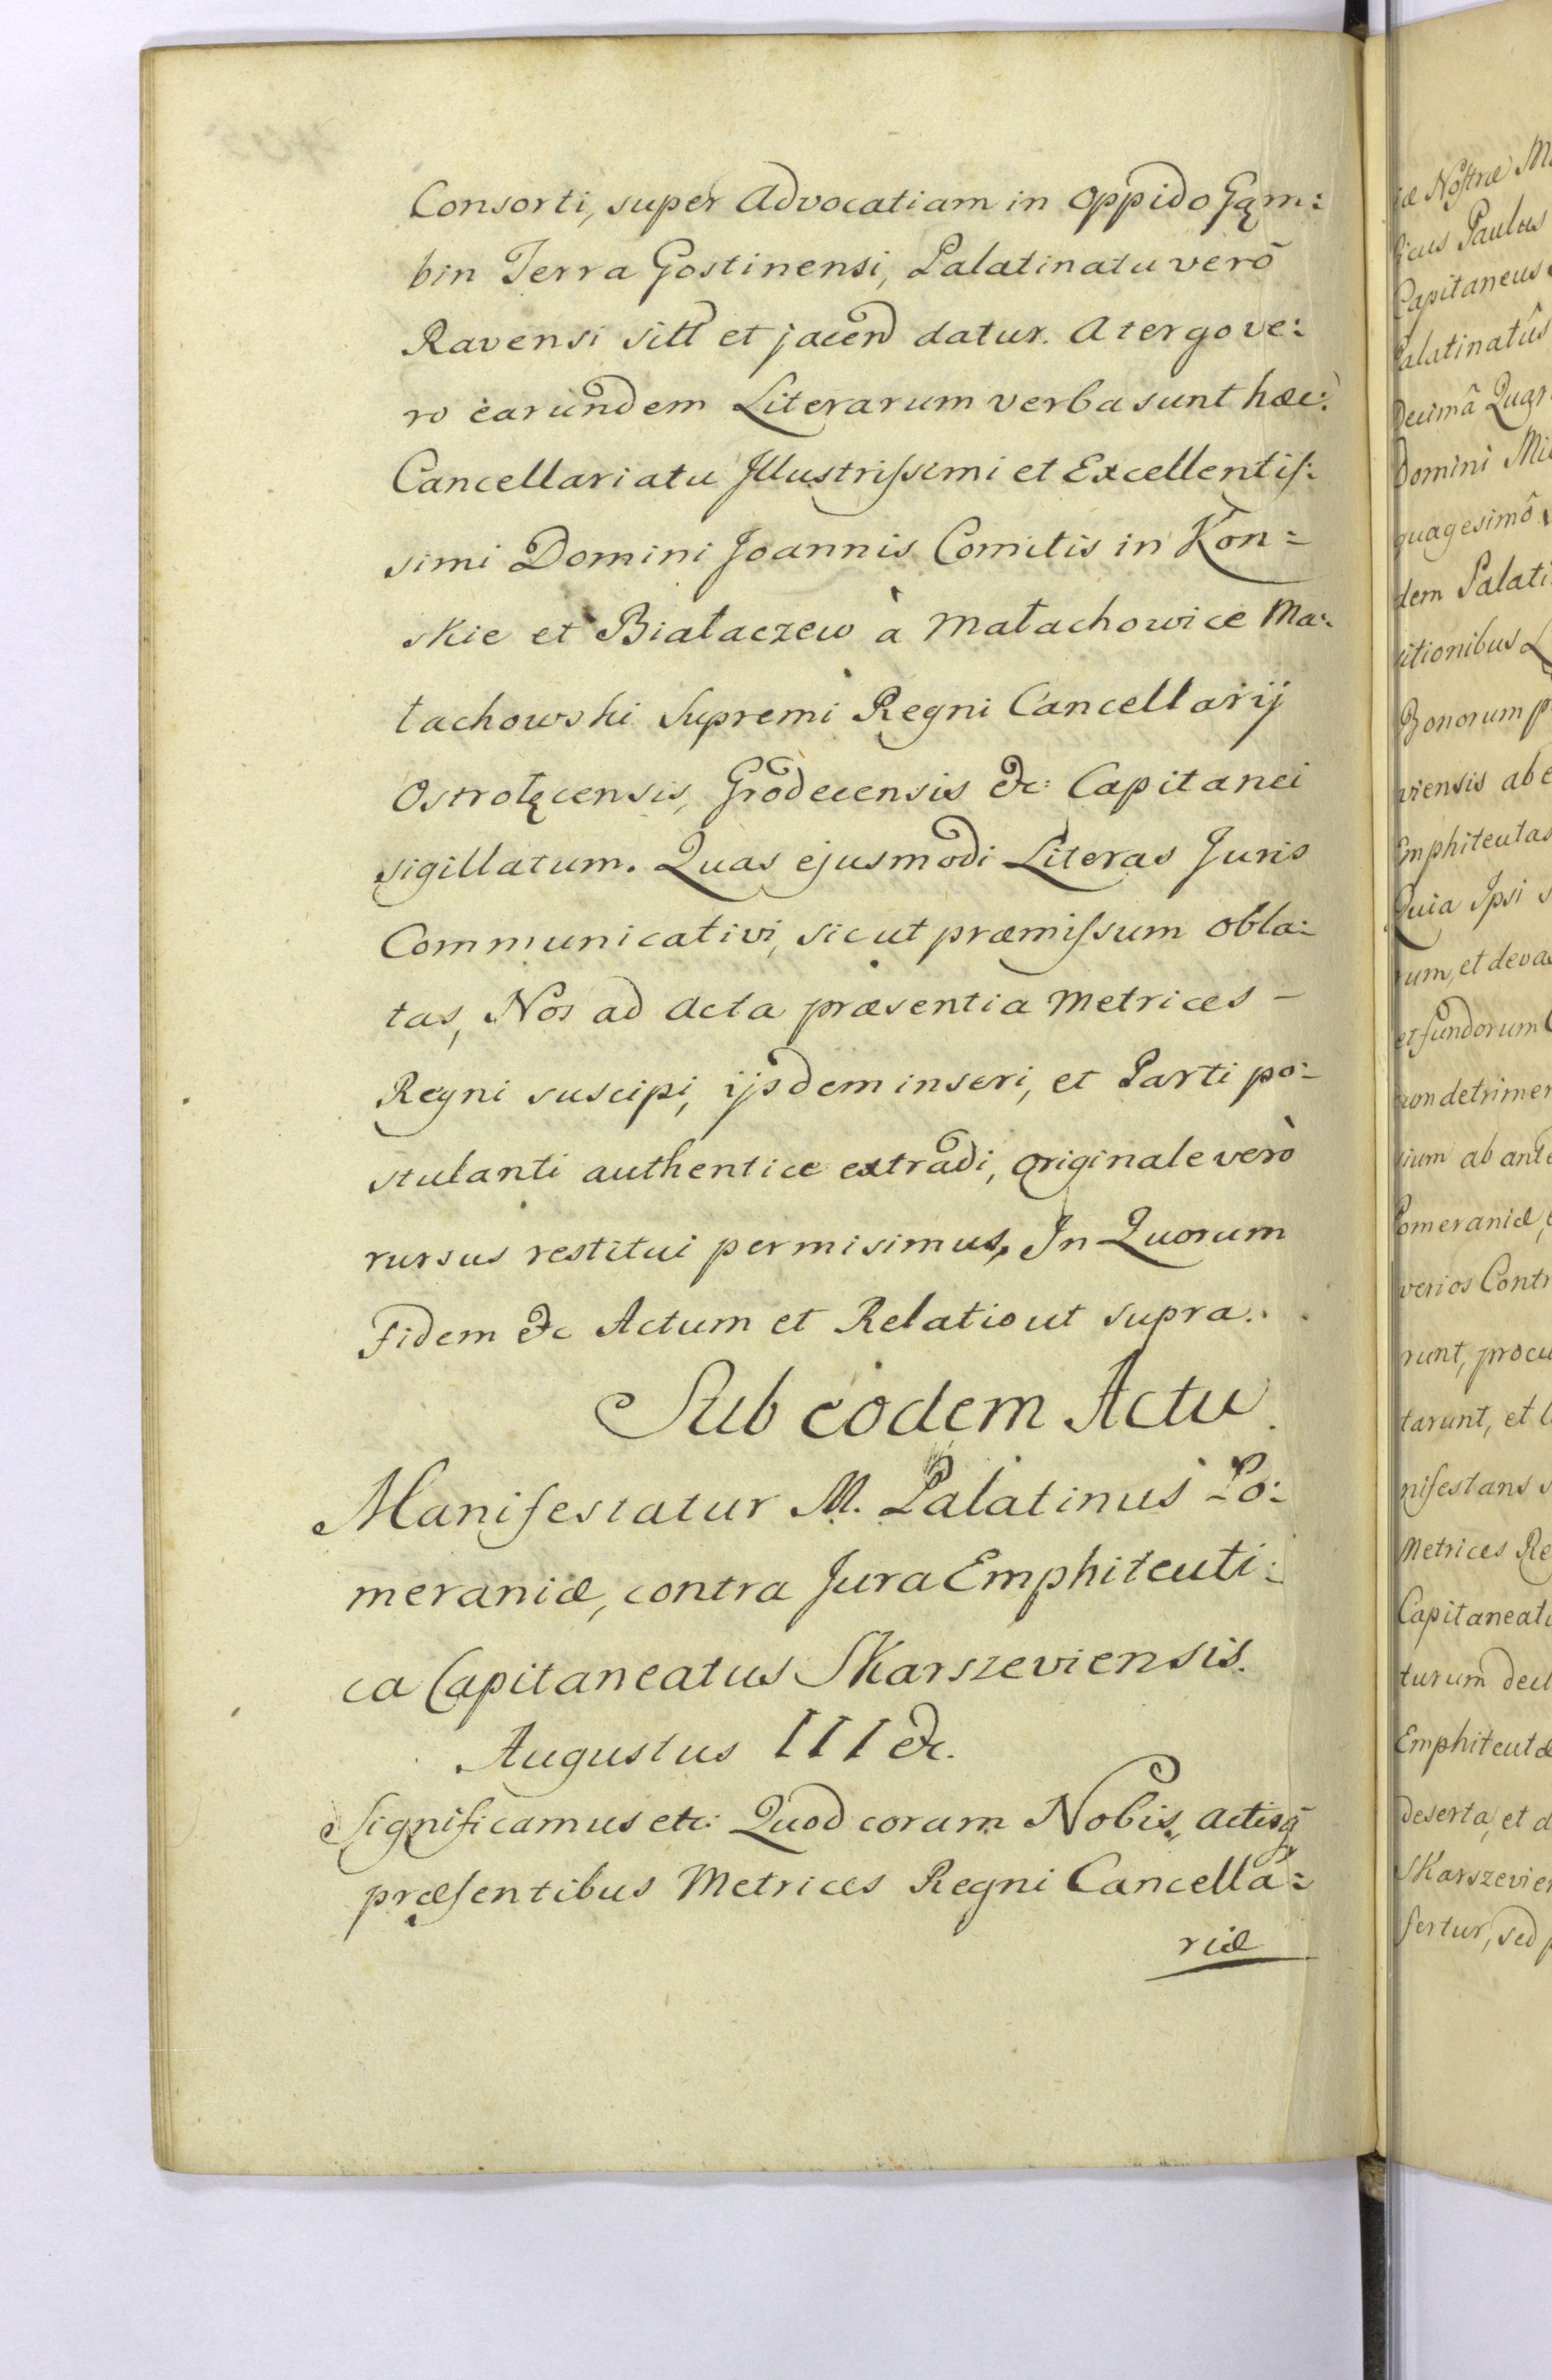 Consorti, super Advocatiam in Oppido Gąm:
bin Terra Gostinensi, Palatinatu verō
Ravensi sitt et jacen datur. A tergo ve:
ro earundem Literarum verba sunt hæc:
Cancellariatu Jllustrissimi et Excellentis:
simi Domini Joannis Comitis in Kon=
skie et Białaczew à Małachowice Ma:
łachowski Supremi Regni Cancellarij
Ostrołęcensis, Grodecensis &c: Capitanei
sigillatum. Quas ejusmodi Literas Juris
Communicativi, sicut præmissum obla:
tas, Nos ad Acta præsentia Metrices –
Regni suscipi, ijsdem inseri, et Parti po:
stulanti authentice extradi, originale verò
rursus restitui permisimus, In Quorum
Fidem &c Actum et Relatio ut supra.
Sub eodem Actu
Manifestatur M. Palatinus Po:
meraniæ, contra Jura Emphiteuti:
ca Capitaneatus Skarszeviensis.
Augustus III &c.
Significamus etc: Quod coram Nobis, actisq̄
præsentibus Metrices Regni Cancella:
riæ
iæ Nostræ
Paulus
Capitaneus
Palatinatûs
Decimâ
Domini
quagesimô
dem
Bonorum
viensis ab
Emphiteutas
Quia Ipsi
rum, et
et fundorum
non
ium ab
Pomeraniæ,
verios
runt,
tarunt, et
nifestans
Metrices
turum
Emphiteutæ
deserta, et
fertur, sed